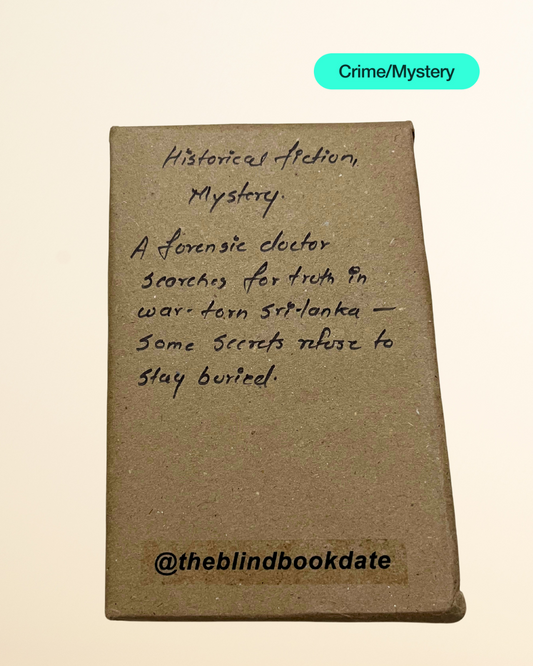 Crime/Mystery
Historical fiction,
Mystery.
A forensic doctor
searches for truth in
war-torn sri-lanka —
some secrets refuse to
stay buried.
@theblindbookdate